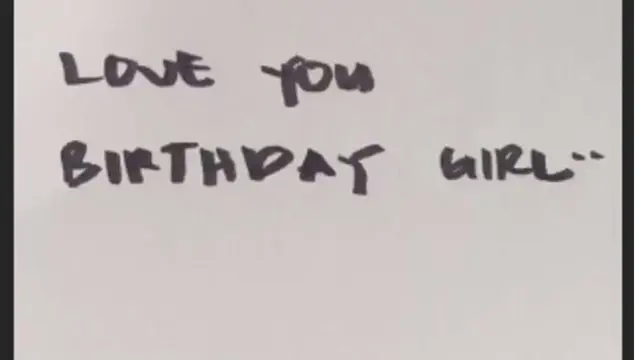 LOVE YOU
BIRTHDAY GIRL..